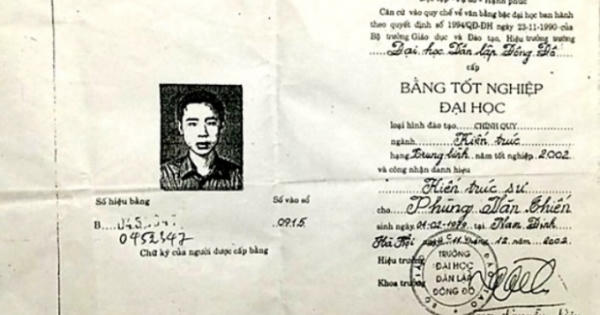 Căn cứ vào quy chế về văn bằng bậc đại học ban hành
theo quyết định số 1994/QĐ-ĐH ngày 23-11-1990 của
Bộ trưởng Giáo dục và Đào tạo, Hiệu trưởng trường
Đại học Dân lập Đông Đô
cấp
BẰNG TỐT NGHIỆP
ĐẠI HỌC
loại hình đào tạo CHÍNH QUY
ngành Kiến trúc
hạng Trung bình năm tốt nghiệp 2002
và công nhận danh hiệu
Kiến trúc sư
cho Phùng Văn Thiên
sinh ngày 01-02-1979 tại Nam Định
Hà Nội ngày 11 tháng 12 năm 2002
Hiệu trưởng
Khoa trưởng
TRƯỜNG
ĐẠI HỌC
DÂN LẬP
ĐÔNG ĐÔ
Số hiệu bằng
Số vào sổ
B
0915
0452347
Chữ ký của người được cấp bằng